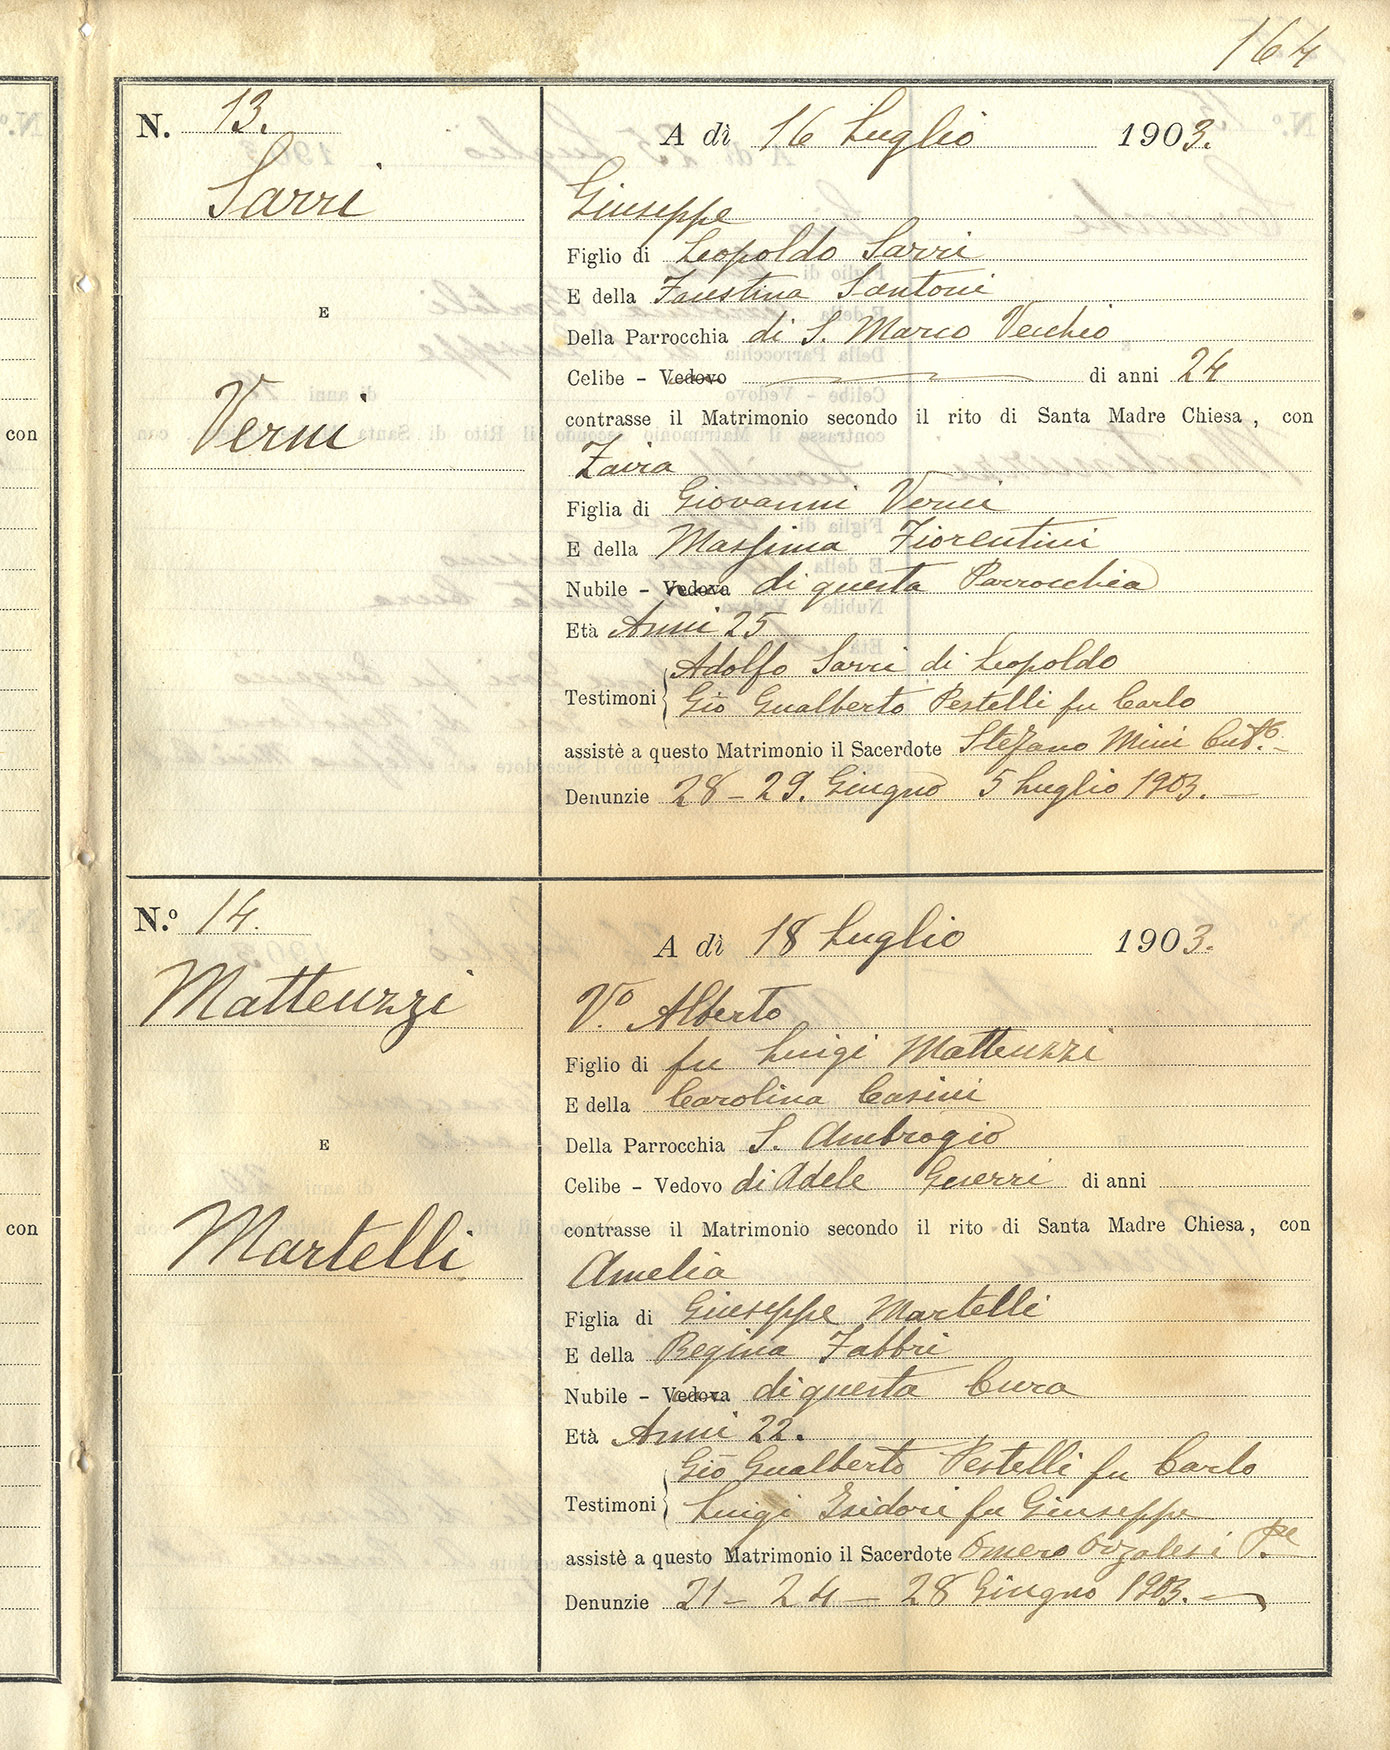 164
N. 13.
Sarri
E
Verni
A dì 16 Luglio 1903.
Giuseppe
Figlio di Leopoldo Sarri
E della Faustina Santoni
Della Parrocchia di S. Marco Vecchio
Celibe - Vedovo di anni 24
contrasse il Matrimonio secondo il rito di Santa Madre Chiesa, con
Zaira
Figlia di Giovanni Verni
E della Massima Fiorentini
Nubile - Vedova di questa Parrocchia
Età Anni 25
Adolfo Sarri di Leopoldo
Testimoni
Gio Gualberto Pestelli fu Carlo
assistè a questo Matrimonio il Sacerdote Stefano Mini
Denunzie 28 - 29. Giugno 5 Luglio 1903.
con
N.º 14.
Matteuzzi
E
Martelli
A dì 18 Luglio 1903.
Vº. Alberto
Figlio di fu Luigi Matteuzzi
E della Carolina Casini
Della Parrocchia S. Ambrogio
Celibe - Vedovo di Adele Guerri di anni
contrasse il Matrimonio secondo il rito di Santa Madre Chiesa, con
Amelia
Figlia di Giuseppe Martelli
E della Regina Fabbri
Nubile - Vedova di questa Cura
Età Anni 22.
Gio Gualberto Pestelli fu Carlo
Testimoni
Luigi Isidori fu Giuseppe
assistè a questo Matrimonio il Sacerdote Omero
Denunzie 21 - 24 - 28 Giugno 1903.
con